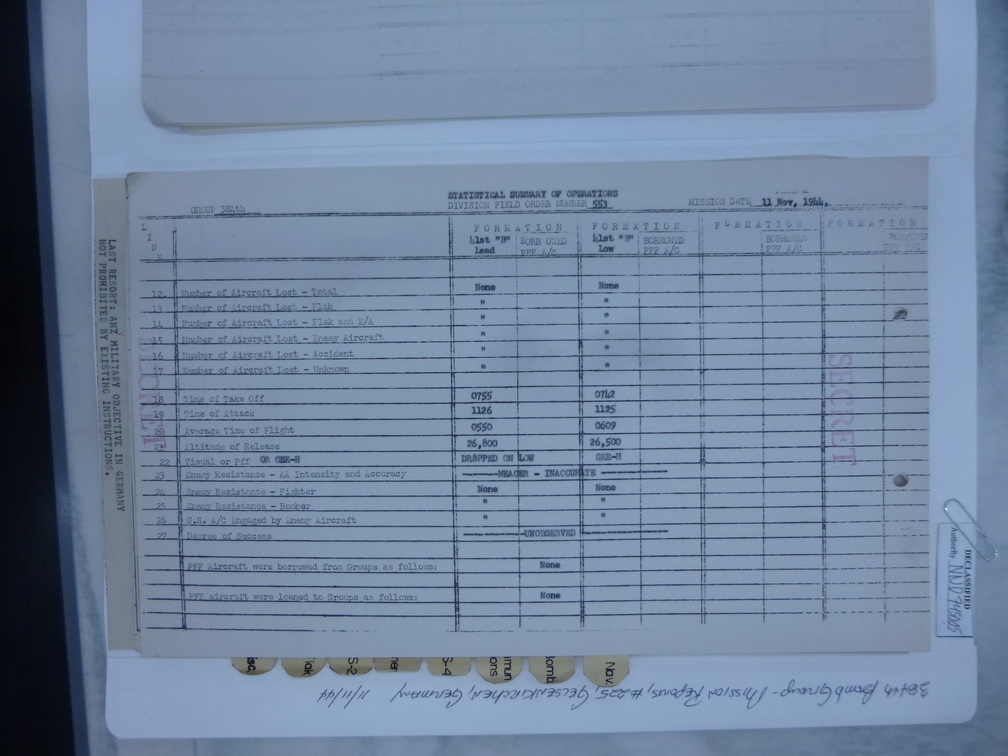 STATISTICAL SUMMARY OF OPERATIONS
GROUP 384th DIVISION FIELD ORDER NUMBER 553 MISSION DATE 11 Nov, 1944,
LINE FORMATION FORMATION FORMATION FORMATION
41st "B" Lead BORROWED PFF A/C 41st "B" Low BORROWED PFF A/C BORROWED PFF A/C
12. Number of Aircraft Lost - Total None None
13 Number of Aircraft Lost - Flak " "
14 Number of Aircraft Lost - Flak and E/A " "
15 Number of Aircraft Lost - Enemy Aircraft " "
16 Number of Aircraft Lost - Accident " "
17 Number of Aircraft Lost - Unknown " "
18 Time of Take Off 0755 0742
19 Time of Attack 1126 1125
20 Average Time of Flight 0550 0609
21 Altitude of Release 26,800 26,500
22 Visual or Pff OR GEE-H DRAPPED ON LOW GEE-H
23 Enemy Resistance - AA Intensity and Accuracy MEAGER - INACCURATE
24 Enemy Resistance - Fighter None None
25 Enemy Resistance - Bomber " "
26 U.S. A/C Engaged by Enemy Aircraft " "
27 Degree of Success UNOBSERVED
PFF Aircraft were borrowed from Groups as follows: None
PFF aircraft were loaned to Groups as follows: None
SECRET
SECRET
LAST RESORT: ANY MILITARY OBJECTIVE IN GERMANY
NOT PROHIBITED BY EXISTING INSTRUCTIONS.
DECLASSIFIED
Authority NND 745005
isc.
lak
S-2
S-4
Bomb
Nav.
384th Bomb Group - Mission Reports, #225, Gelsenkirchen, Germany 11/11/44